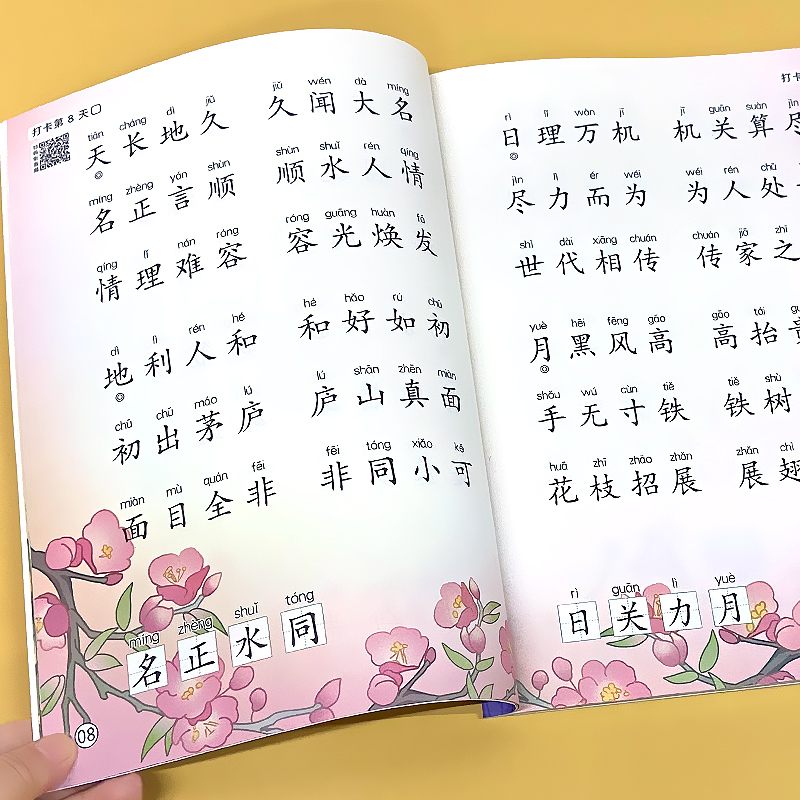 打卡第8天
tiān cháng dì jiǔ jiǔ wén dà míng
天长地久 久闻大名
míng zhèng yán shùn shùn shuǐ rén qíng
名正言顺 顺水人情
qíng lǐ nán róng róng guāng huàn fā
情理难容 容光焕发
dì lì rén hé hé hǎo rú chū
地利人和 和好如初
chū chū máo lú lú shān zhēn miàn
初出茅庐 庐山真面
miàn mù quán fēi fēi tóng xiǎo kě
面目全非 非同小可
míng zhèng shuǐ tóng
名正水同
08
打卡
rì lǐ wàn jī jī guān suàn jìn
日理万机 机关算尽
jìn lì ér wéi wéi rén chǔ
尽力而为 为人处
shì dài xiāng chuán chuán jiā zhī
世代相传 传家之
yuè hēi fēng gāo gāo tái
月黑风高 高抬
shǒu wú cùn tiě tiě shù
手无寸铁 铁树
huā zhī zhāo zhǎn zhǎn chì
花枝招展 展翅
rì guān lì yuè
日关力月